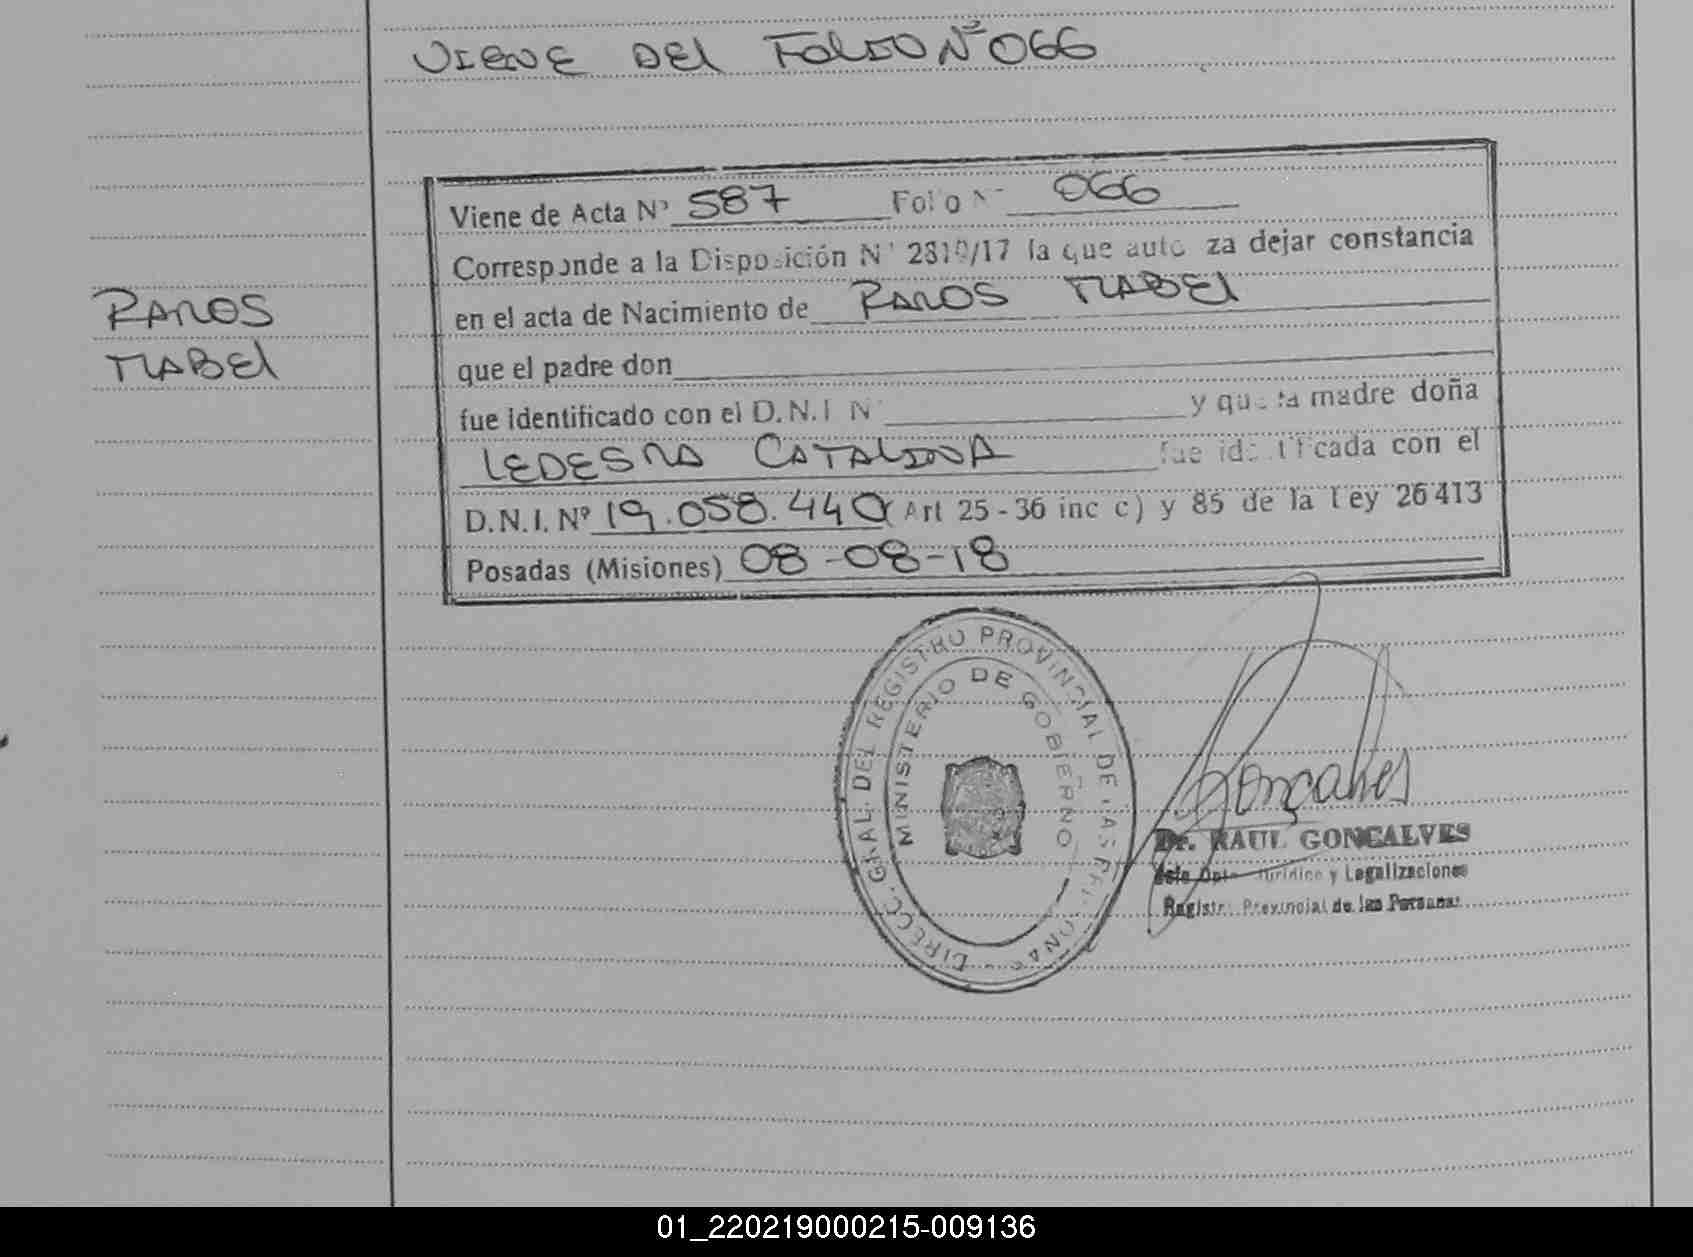 VIENE DEL FOLIO Nº 066
Viene de Acta Nº 587 Folio Nº 066
Corresponde a la Disposición Nº 2810/17 la que autoriza dejar constancia
en el acta de Nacimiento de RAMOS MABEL
RAMOS
MABEL
que el padre don
fue identificado con el D.N.I Nº y que la madre doña
LEDESMA CATALINA fue identificada con el
D.N.I. Nº 19.058.440 (Art 25 - 36 inc c) y 85 de la Ley 26413
Posadas (Misiones) 08-08-18
DIRECC. GRAL. DEL REGISTRO PROVINCIAL DE LAS PERSONAS
MINISTERIO DE GOBIERNO
Gonçalves
Dr. RAUL GONCALVES
Jefe Dpto. Jurídico y Legalizaciones
Registro Provincial de las Personas
01_220219000215-009136